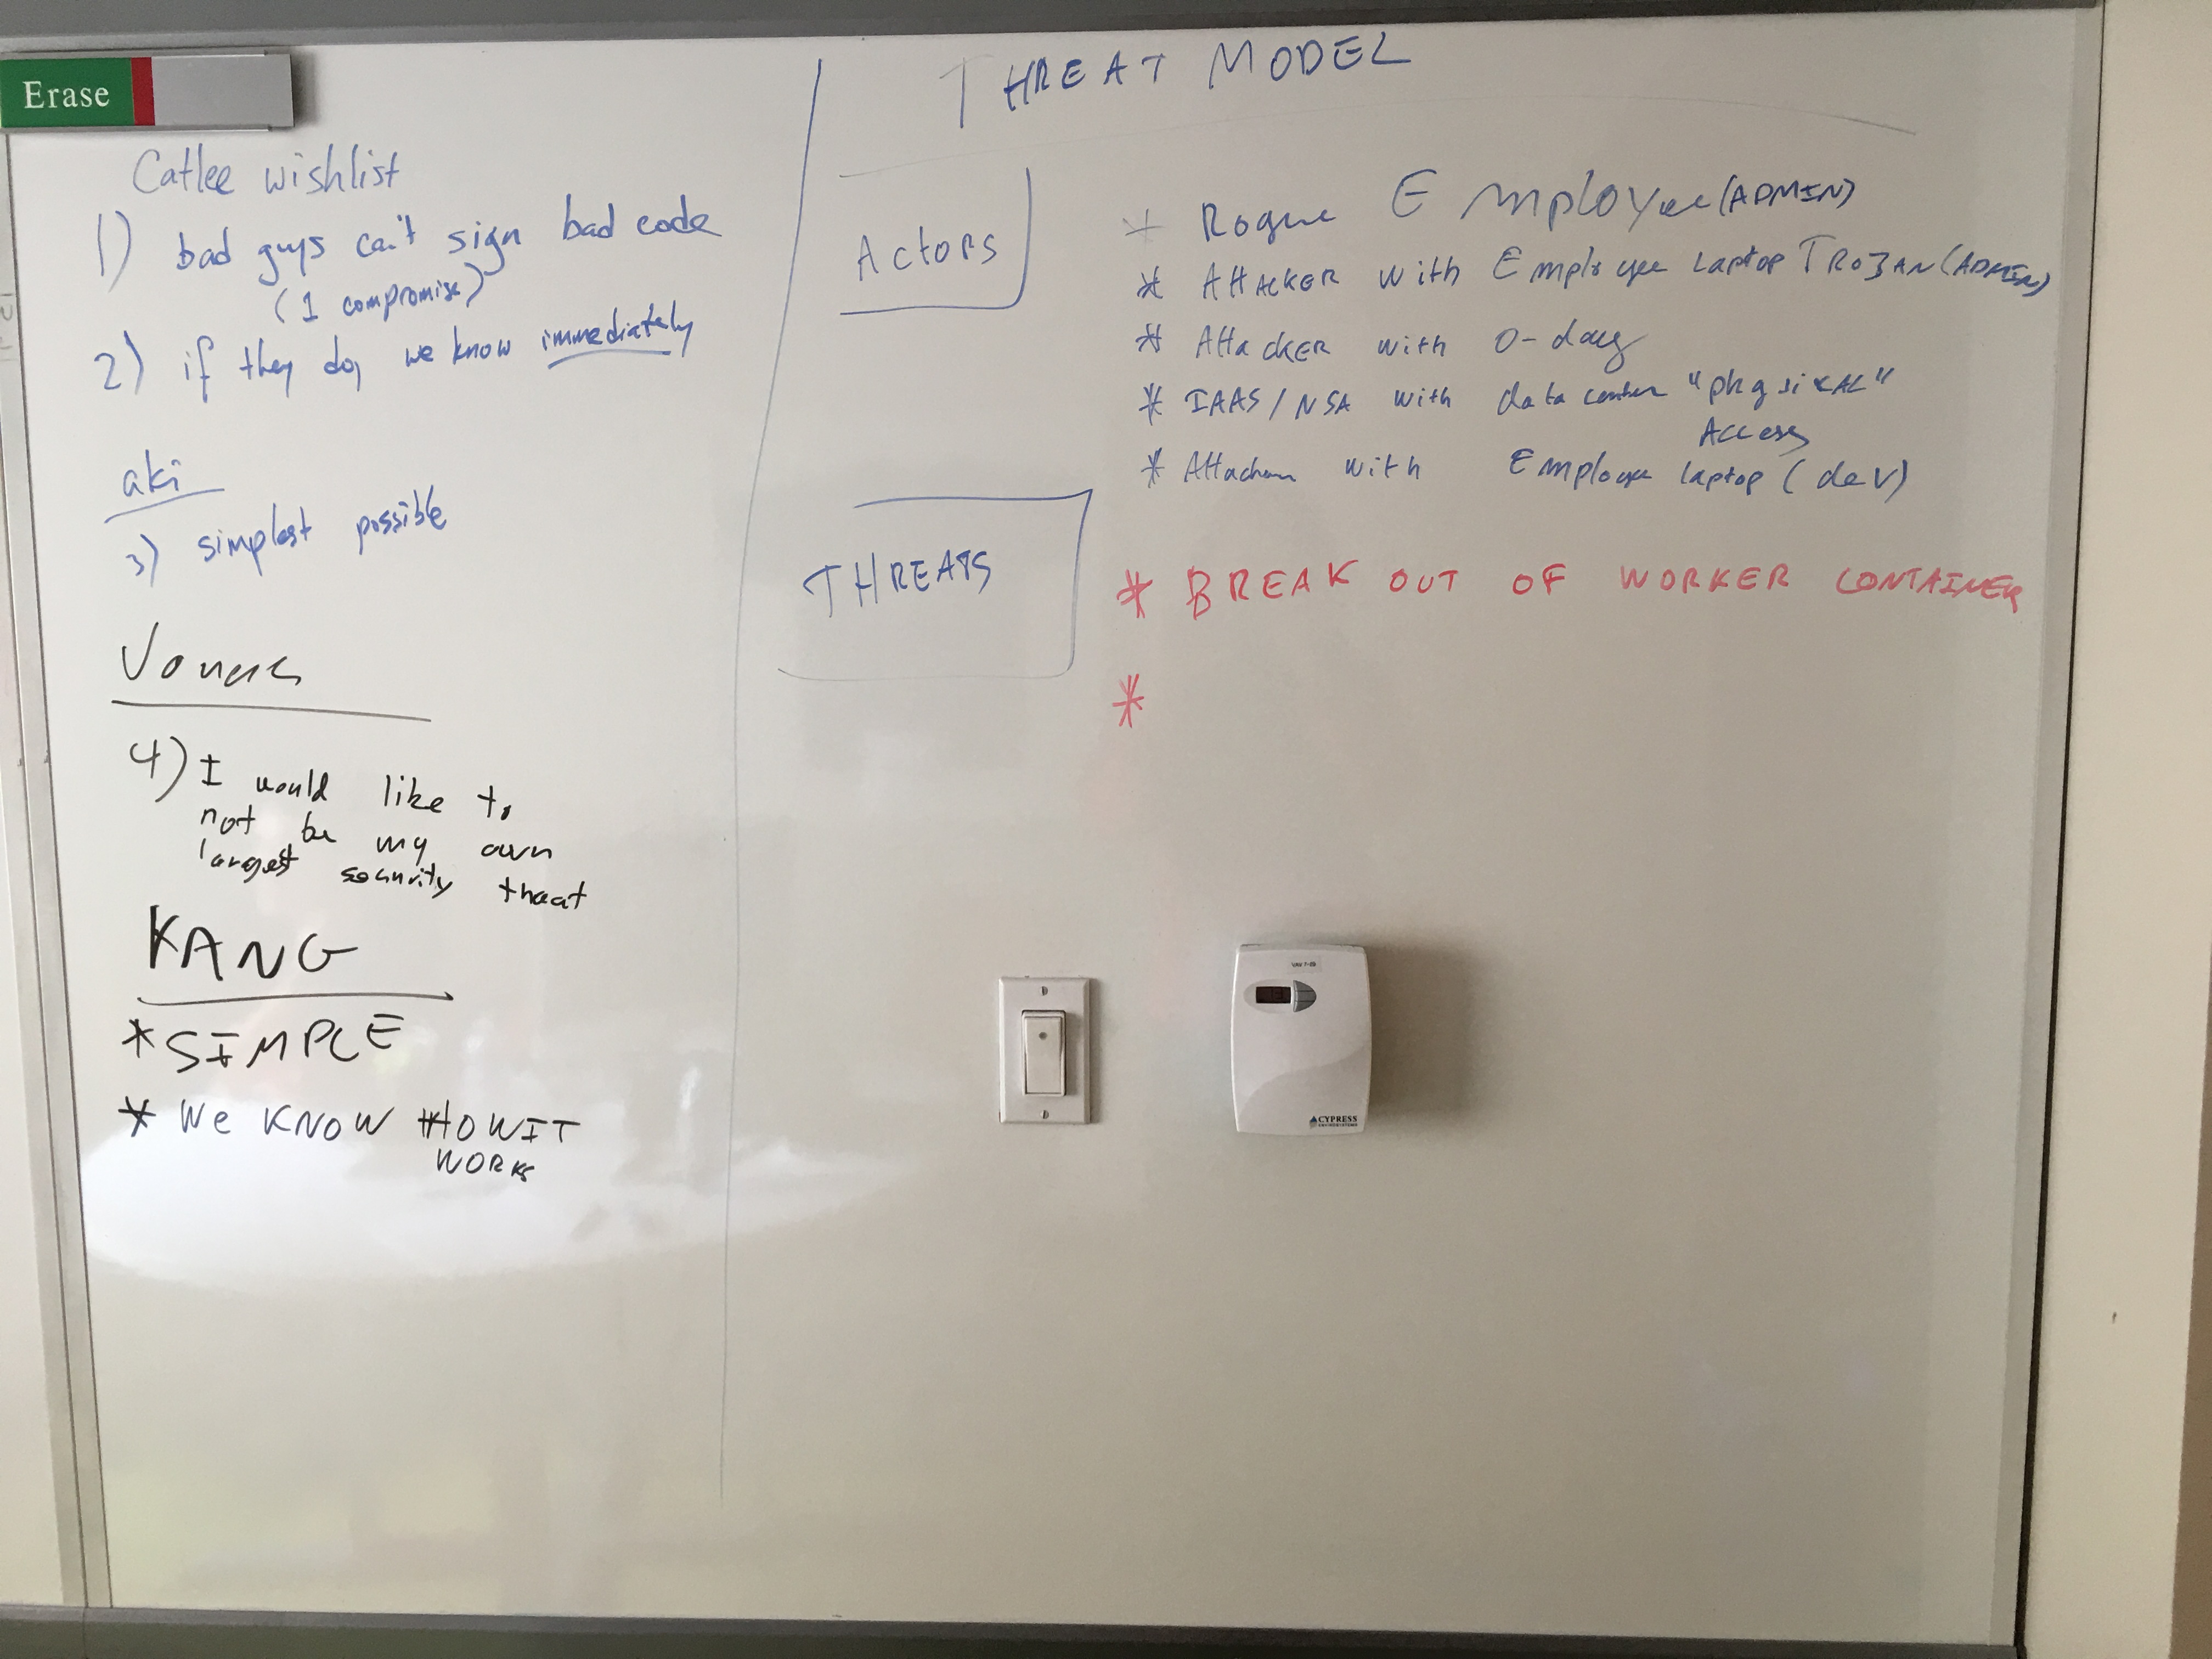 Erase
Catlee wishlist
1) bad guys can't sign bad code
(1 compromise)
2) if they do, we know immediately
aki
3) simplest possible
4) I would like to
not be my own
largest security threat
KANG
* SIMPLE
* We KNOW HOW IT
WORKS
THREAT MODEL
Actors
* Rogue Employee (ADMIN)
* Attacker with Employee Laptop TROJAN (ADMIN)
* Attacker with 0-day
* IAAS/NSA with data center "phgsikAL"
Access
* Attacker with Employee laptop (dev)
THREATS
* BREAK OUT OF WORKER CONTAINER
*
VAV 7-
CYPRESS